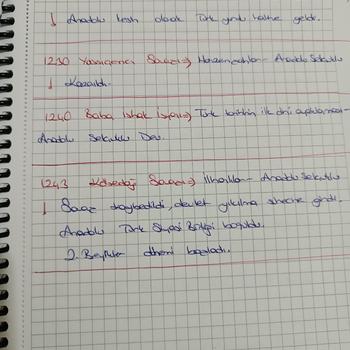 ↓ Anadolu kesin olarak Türk yurdu haline geldi.
1230 Yassıçemen Savaşı ⇒ Harzemşahlar - Anadolu Selçuklu
↓ Kazanıldı.
1240 Baba İshak İsyanı ⇒ Türk tarihinin ilk dini ayaklanması -
Anadolu Selçuklu Dev.
1243 Kösedağ Savaşı ⇒ İlhanlılar - Anadolu Selçuklu
↓ Savaş kaybedildi, devlet yıkılma sürecine girdi.
Anadolu Türk Siyasi Birliği bozuldu.
2. Beylikler dönemi başladı.